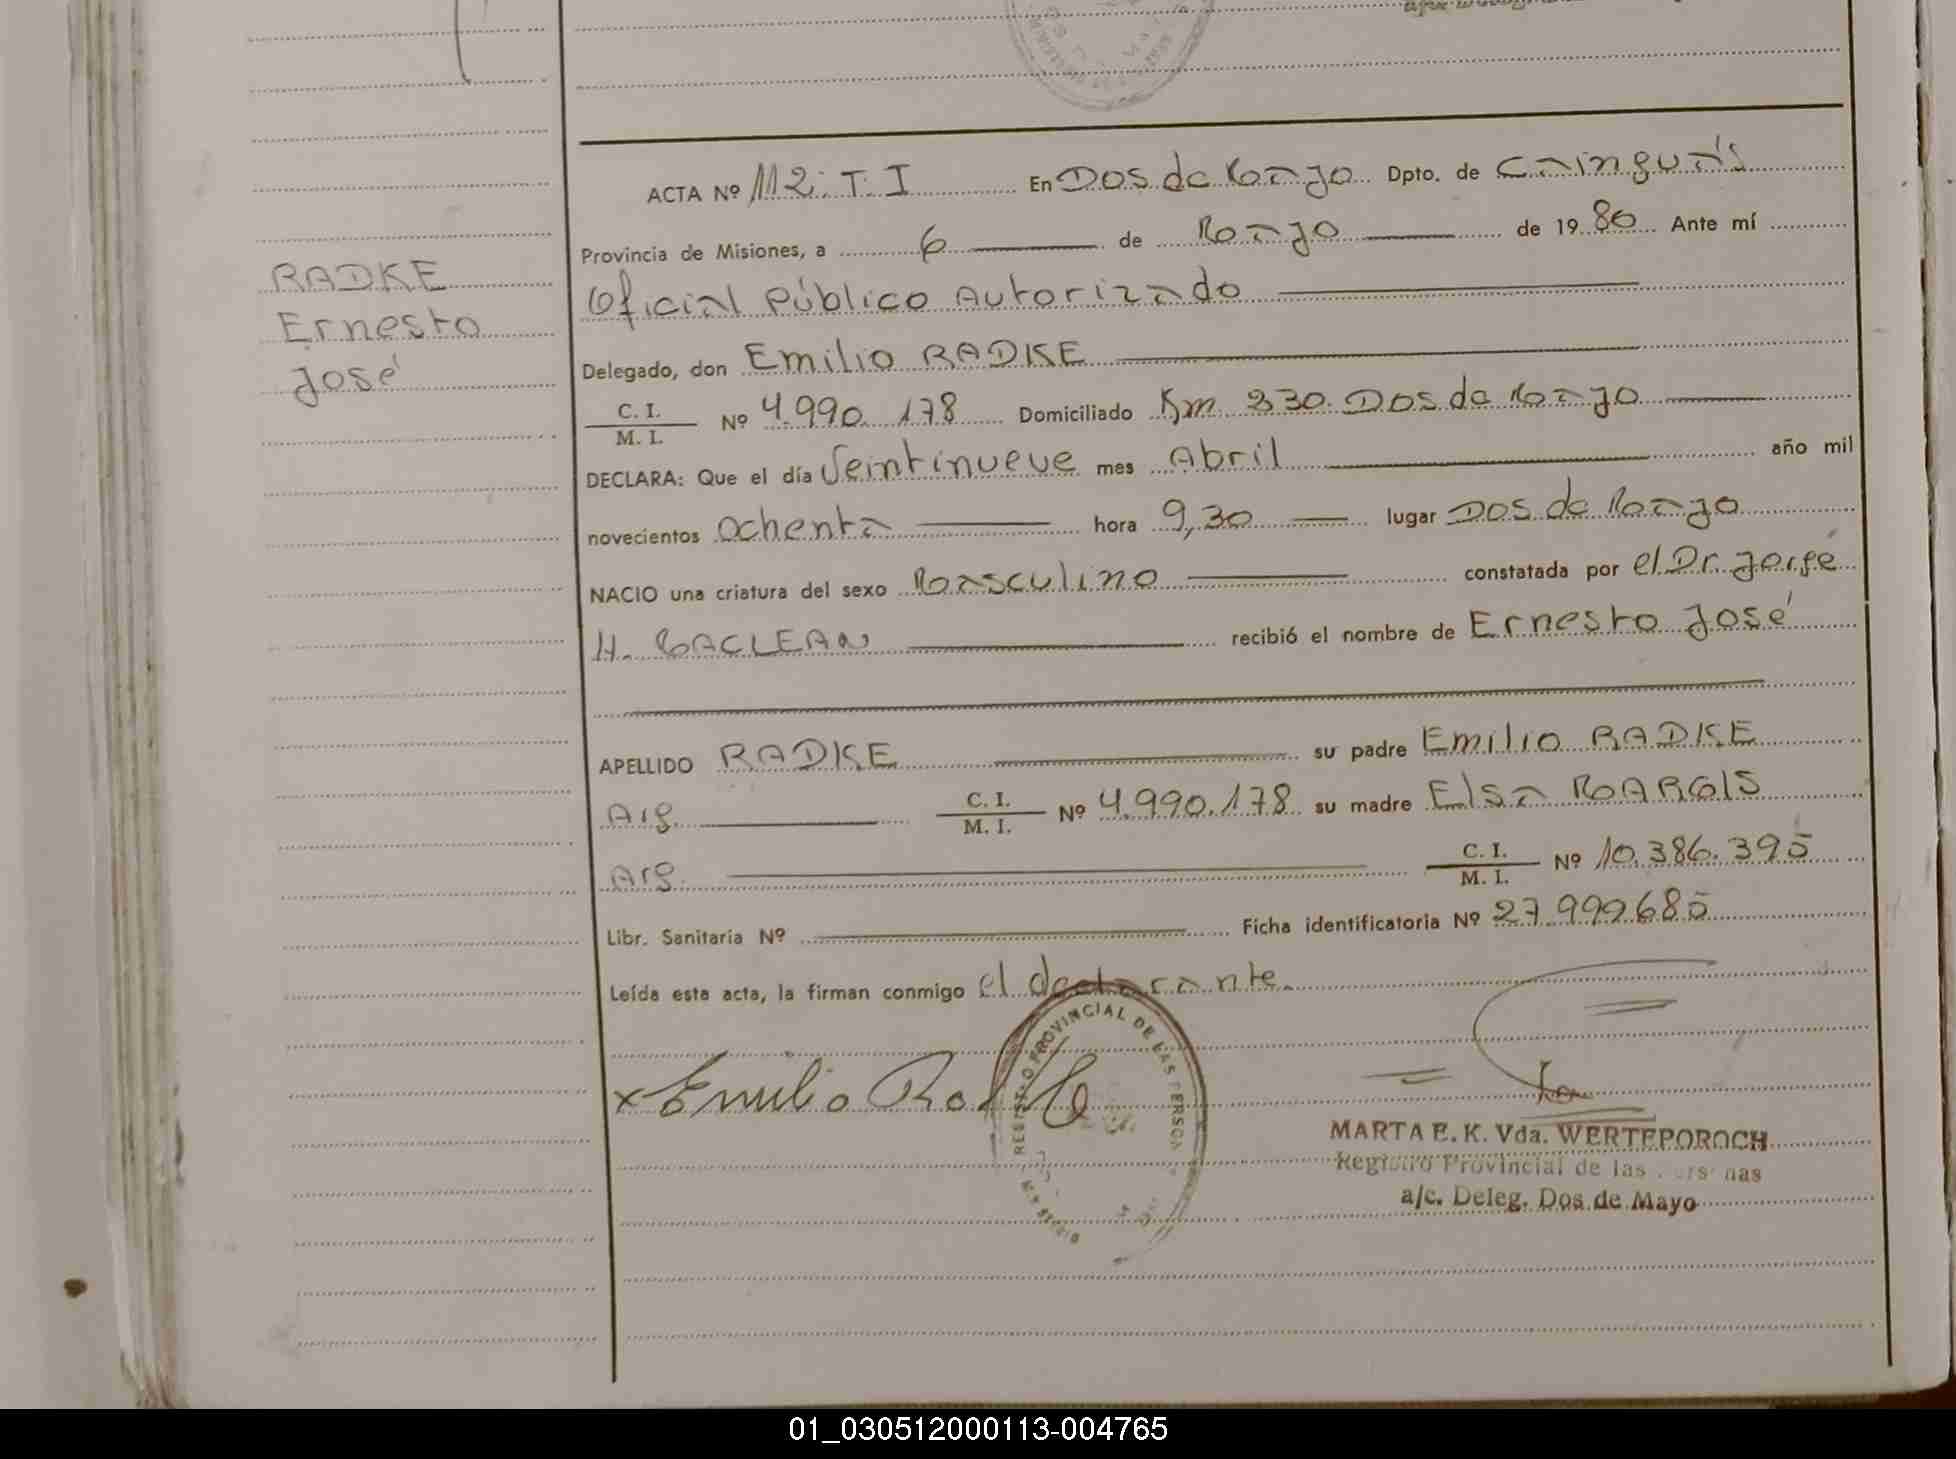 RADKE
Ernesto
José
ACTA Nº 112. T. I En Dos de Mayo Dpto. de Cainguás
Provincia de Misiones, a 6 de Mayo de 1980 Ante mí
Oficial Público Autorizado
Delegado, don Emilio RADKE
C. I.
M. I. Nº 4.990.178 Domiciliado Km 230 Dos de Mayo
DECLARA: Que el día Veintinueve mes Abril año mil
novecientos ochenta hora 9,30 lugar Dos de Mayo
NACIO una criatura del sexo Masculino constatada por el Dr. Jorge
H. MACLEAN recibió el nombre de Ernesto José
APELLIDO RADKE su padre Emilio RADKE
Arg. C. I. M. I. Nº 4.990.178 su madre Elsa MARGIS
Arg. C. I. M. I. Nº 10.386.395
Libr. Sanitaria Nº Ficha identificatoria Nº 27.999685
Leída esta acta, la firman conmigo el declarante.
x Emilio Radke
REGISTRO PROVINCIAL DE LAS PERSONAS
MARTA E. K. Vda. WERTEPOROCH
Registro Provincial de las Personas
a/c. Deleg. Dos de Mayo
01_030512000113-004765